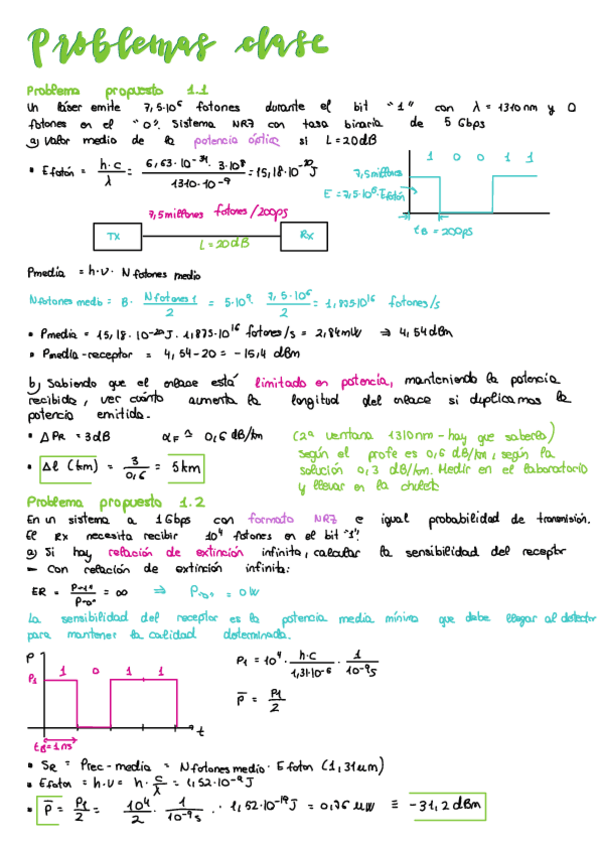 Problemas clase
Problema propuesto 1.1
Un láser emite 7,5·10⁶ fotones durante el bit "1" con λ = 1310nm y 0
fotones en el "0". Sistema NRZ con tasa binaria de 5 Gbps
a) Valor medio de la potencia óptica si L = 20dB
• Efotón = h·c / λ = 6,63·10⁻³⁴ · 3·10⁸ / 1310·10⁻⁹ = 15,18·10⁻²⁰ J
1 0 0 1 1
7,5 millones
E = 7,5·10⁶·Efotón
tB = 200ps
7,5 millones fotones/200ps
TX
L = 20dB
RX
Pmedia = h·υ· Nfotones medio
Nfotones medio = B· Nfotones 1 / 2 = 5·10⁹· 7,5·10⁶ / 2 = 1,875·10¹⁶ fotones/s
• Pmedia = 15,18·10⁻²⁰ J · 1,875·10¹⁶ fotones/s = 2,84mW ⇒ 4,54dBm
• Pmedia-receptor = 4,54-20 = -15,4 dBm
b) Sabiendo que el enlace está limitado en potencia, manteniendo la potencia
recibida, ver cuánto aumenta la longitud del enlace si duplicamos la
potencia emitida.
• ΔPR = 3dB αF ≃ 0,6 dB/km (2ª ventana 1310nm - hay que saberlo)
Según el profe es 0,6 dB/km, según la
solución 0,3 dB/km. Medir en el laboratorio
y llevar en la chuleta
• Δl (km) = 3 / 0,6 = 5km
Problema propuesto 1.2
En un sistema a 1Gbps con formato NRZ e igual probabilidad de transmisión.
El RX necesita recibir 10⁴ fotones en el bit "1".
a) Si hay relación de extinción infinita, calcular la sensibilidad del receptor
- Con relación de extinción infinita:
ER = P"1" / P"0" = ∞ ⇒ P"0" = 0W
La sensibilidad del receptor es la potencia media mínima que debe llegar al detector
para mantener la calidad determinada.
P
P1
1 0 1 1
t
tB = 1ns
P1 = 10⁴ · h·c / 1,31·10⁻⁶ · 1 / 10⁻⁹s
P̅ = P1 / 2
• SR = Prec-media = Nfotones medio · Efoton (1,31μm)
• Efoton = h·υ = h· c / λ = 1,52·10⁻¹⁹ J
• P̅ = P1 / 2 = 10⁴ / 2 · 1 / 10⁻⁹s · 1,52·10⁻¹⁹ J = 0,76 μW ≡ -31,2 dBm